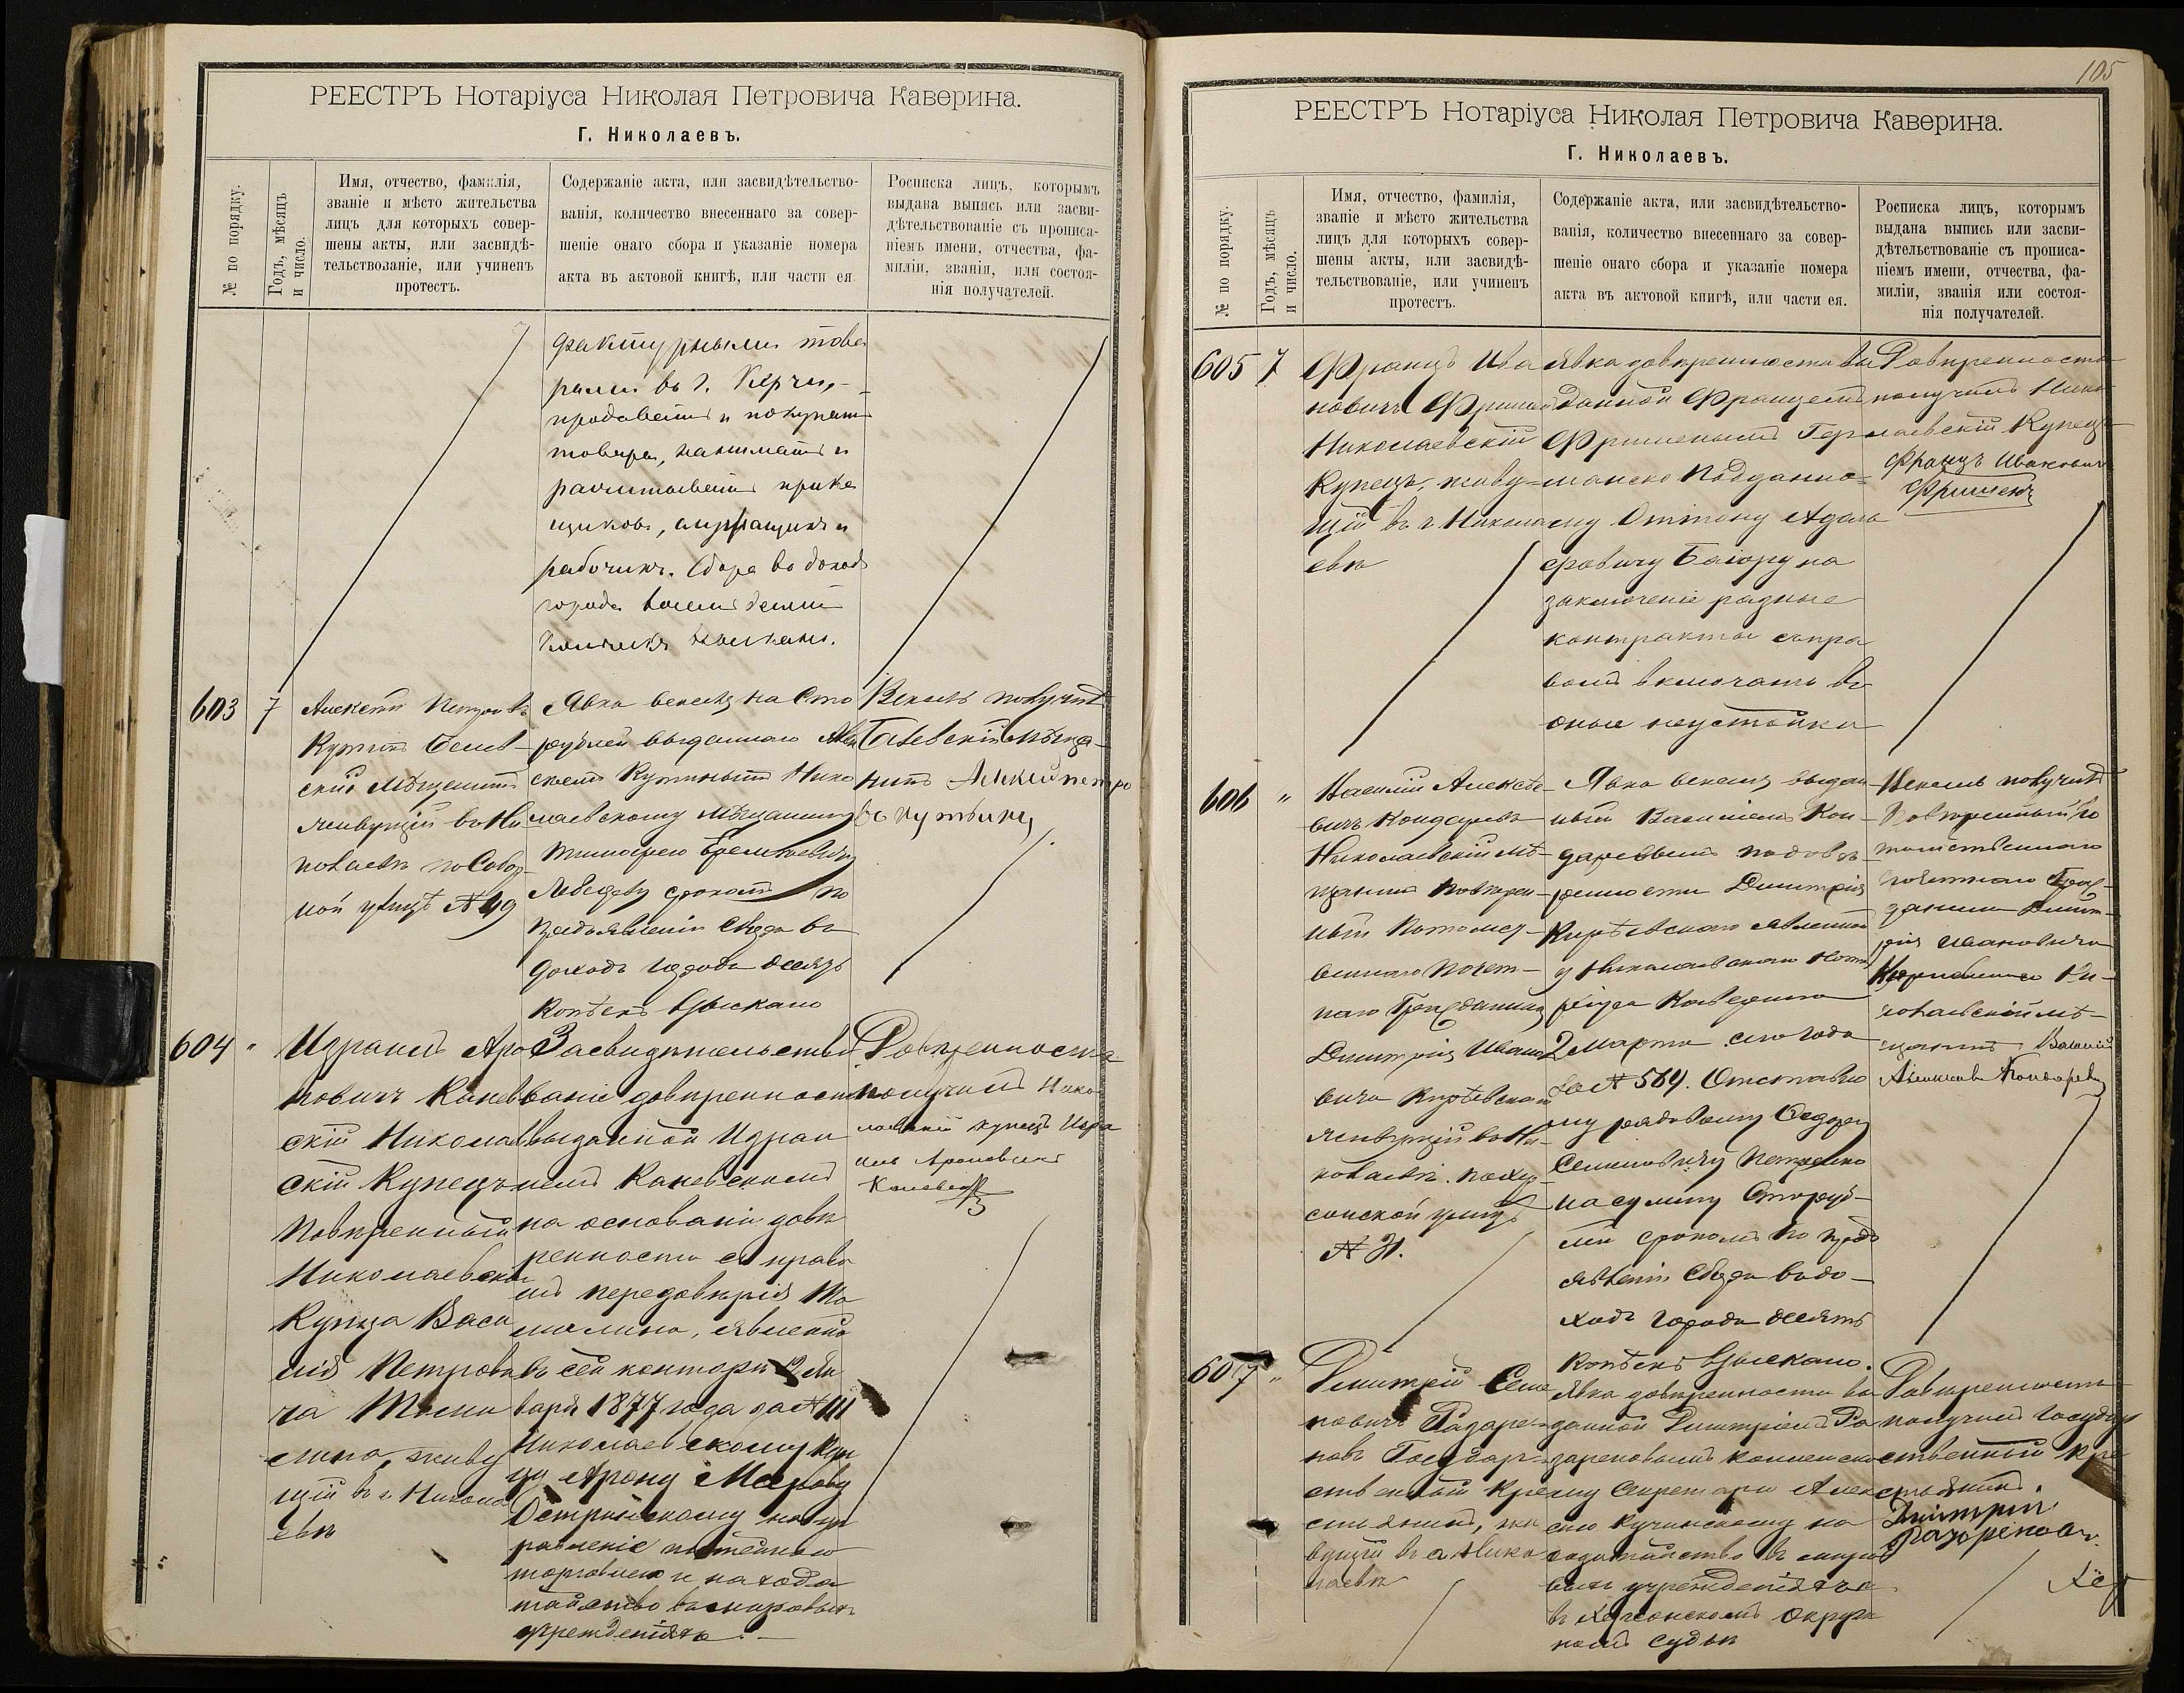 РЕЕСТРЪ Нотаріуса Николая Петровича Каверина.
Г. Николаевъ.
№ по порядку.
Годъ, мѣсяцъ
и число.
Имя, отчество, фамилія,
званіе и мѣсто жительства
лицъ для которыхъ совер-
шены акты, или засвидѣ-
тельствованіе, или учиненъ
протестъ.
Содержаніе акта, или засвидѣтельство-
ванія, количество внесеннаго за совер-
шеніе онаго сбора и указаніе номера
акта въ актовой книгѣ, или части ея
Росписка лицъ, которымъ
выдана выпись или засви-
дѣтельствованіе съ прописа-
ніемъ имени, отчества, фа-
миліи, званія, или состоя-
нія получателей.
фактурными това
рами въ г. Керчи,
продавать и покупать
товары, нанимать и
расчитывать прика
щиковъ, служащихъ и
рабочихъ. Сбора въ доходъ
города восемьдесятъ
603
7
Алексѣй Петровъ
Кутинъ Белев-
скій Мѣщанинъ
живущій въ Ни
колаевѣ по Собор-
ной улицѣ № 49
Явка векселя на Сто
рублей выданнаго Алек
сѣемъ Кутинымъ Нико
лаевскому Мѣщанину
Лебедеву срокомъ по
предъявленіи Сбора въ
доходъ города десять
копѣекъ взыскано
Вексель получилъ
Белевскій мѣща-
нинъ Алексѣй петро
604
"
Израиль Аро
новичъ Канев
скій Николаев
скій Купецъ
повѣренный
Николаевскаго
Купца Васи
лія Петрови
ча Томи
лина, живу
щій въ г. Никола
евѣ
Засвидѣтельство
ваніе довѣренности
выданной Израи
лемъ Каневскимъ
на основаніи довѣ
ренности съ право
мъ передовѣрія То
милина, явленной
въ сей конторѣ 12 Ян
варя 1877 года за № 111
Николаевскому Куп
цу Арону Меерову
Остринскому на уп
равленіе питейною
торговлею и на хода
тайство въ мировыхъ
учрежденіяхъ.
Довѣренность
получилъ Нико
лаевскій купецъ Изра
иль Ароновичъ
Каневскій
105
РЕЕСТРЪ Нотаріуса Николая Петровича Каверина.
Г. Николаевъ.
№ по порядку.
Годъ, мѣсяцъ
и число.
Имя, отчество, фамилія,
званіе и мѣсто жительства
лицъ для которыхъ совер-
шены акты, или засвидѣ-
тельствованіе, или учиненъ
протестъ.
Содержаніе акта, или засвидѣтельство-
ванія, количество внесеннаго за совер-
шеніе онаго сбора и указаніе номера
акта въ актовой книгѣ, или части ея.
Росписка лицъ, которымъ
выдана выпись или засви-
дѣтельствованіе съ прописа-
ніемъ имени, отчества, фа-
миліи, званія или состоя-
нія получателей.
605
7
Францъ Ива
новичъ Фришенъ
Николаевскій
Купецъ, живу-
щій въ г Никола
евѣ
Явка довѣренности вы
данной Францемъ
Фришеномъ Гер
манско Подданно-
му Оттону Адоль
фовичу Баіору на
заключеніе разные
контракты съ пра
вомъ включать въ
оные неустойки
Довѣренность
получилъ Нико
лаевскій Купецъ
Францъ Ивановичъ
Фришенъ
606
"
Василій Алексѣе-
вичъ Кондаревъ
Николаевскій мѣ-
щанинъ повѣрен-
ный Потомст-
веннаго Почет-
наго Гражданина
Дмитрія Ивано
вича Кирѣевскаго
живущій въ Ни-
колаевѣ по Хер-
сонской улицѣ
№ 31.
Явка векселя выдан
ный Василіемъ Кон-
даревымъ по довѣ-
ренности Дмитрія
Кирѣевскаго явленной
у Николаевскаго Нота
ріуса Каверина
2 Марта сего года
за № 569. Отставно
му рядовому Федору
Семеновичу Петренко
на сумму Сто руб-
лей срокомъ по предъ
явленіи Сбора въ до-
ходъ города десять
копѣекъ взыскано.
Вексель получилъ
Повѣренный по
томственнаго
почетнаго Граж-
данина Дмит-
рія Ивановича
Кирѣевскаго Ни-
колаевскій мѣ-
щанинъ Василій
Алексѣевъ Кондаревъ
607
"
Дмитрій Семе
новичъ Разоре-
новъ Государ-
ственный Кре
стьянинъ, жи
вущій въ г. Нико
лаевѣ
Явка довѣренности вы
данной Дмитріемъ Ра
зореновымъ коллежско
му Секретарю Алек
сѣю Кучинскому на
ходатайство въ миро
выхъ учрежденіяхъ и
въ Херсонскомъ Окруж
номъ судѣ
Довѣренность
получилъ государ
ственный кре
стьянинъ
Дмитрій
Разореновъ.